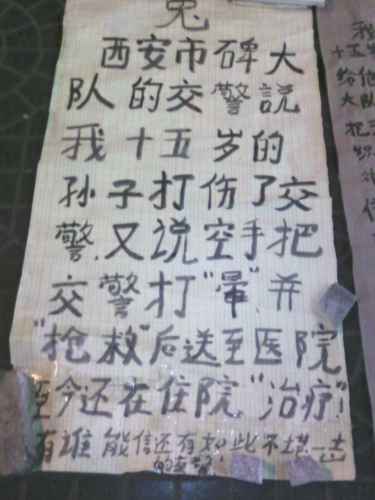 冤
西安市碑大
队的交警説
我十五岁的
孙子打伤了交
警,又说空手把
交警打"晕"并
"抢救"后送至医院
至今还在住院"治疗"!
有谁能信还有如此不堪一击
的交警
我
十五
给他
大队